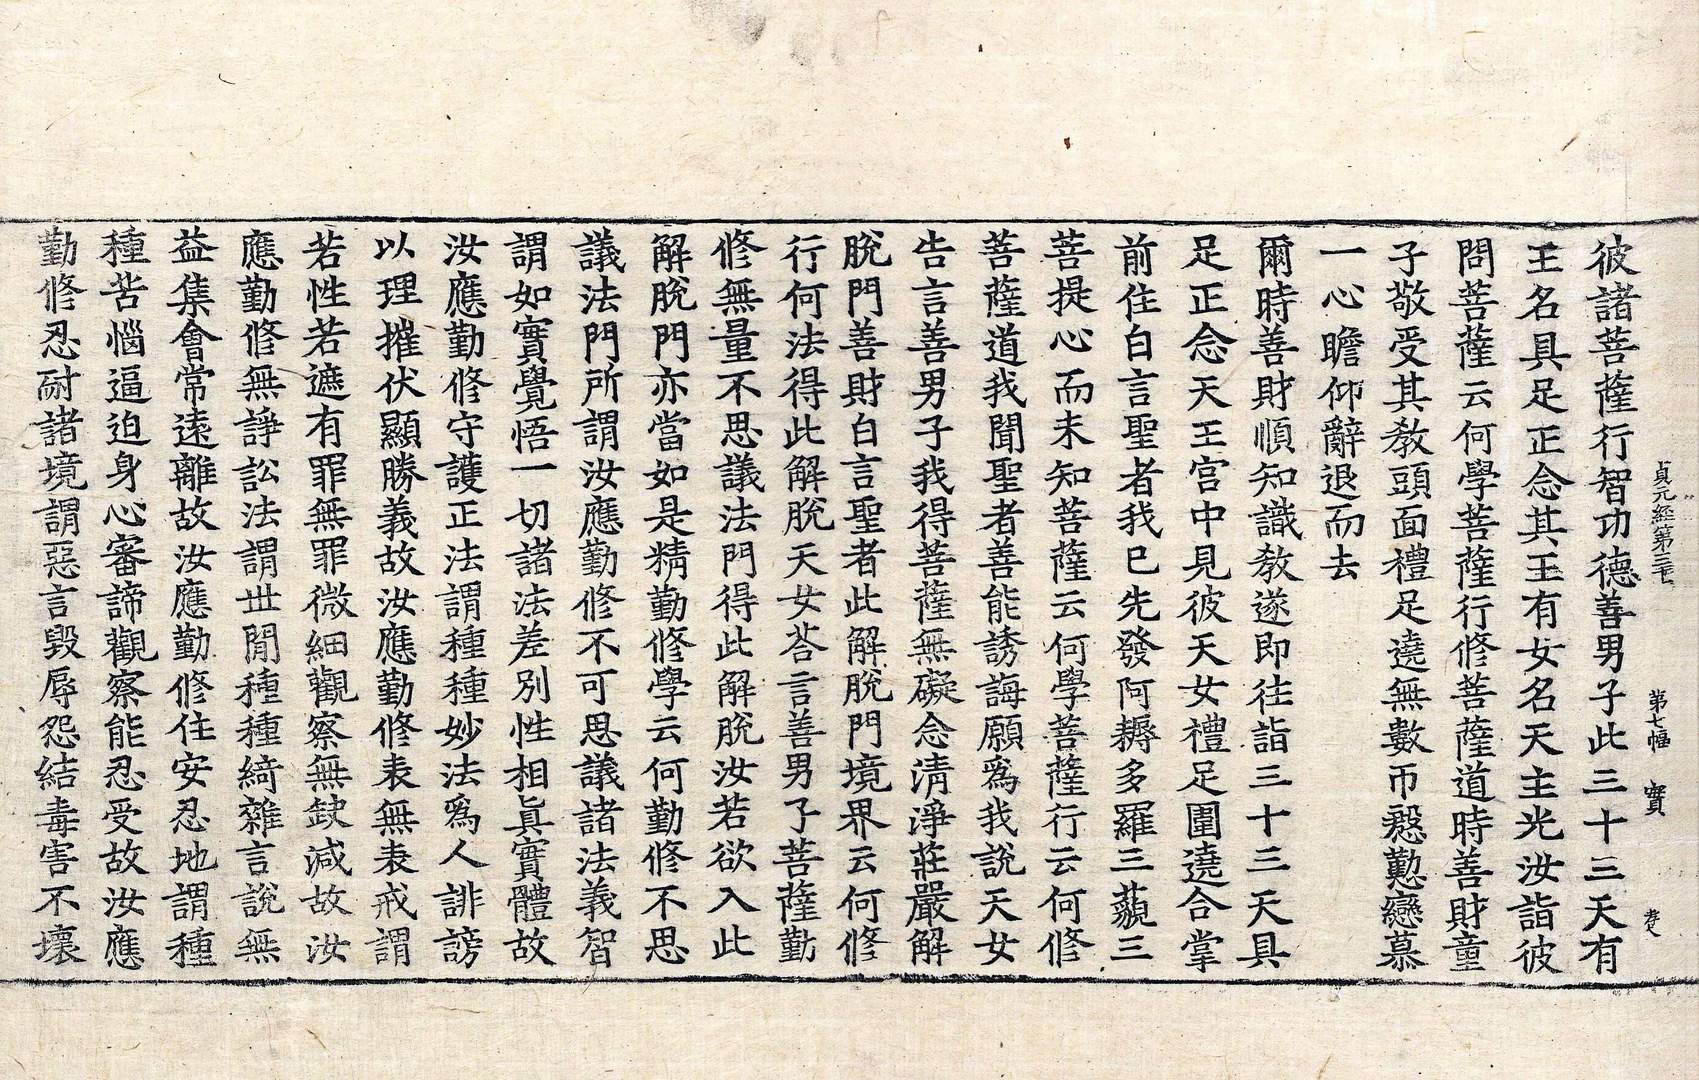 貞元経第三十七 第七幅 實
彼諸菩薩行智功德善男子此三十三天有
王名具足正念其王有女名天主光汝詣彼
問菩薩云何學菩薩行修菩薩道時善財童
子敬受其教頭面禮足遶無數帀慇懃戀慕
一心瞻仰辭退而去
爾時善財順知識教遂即往詣三十三天具
足正念天王宫中見彼天女禮足圍遶合掌
前住白言聖者我已先發阿耨多羅三藐三
菩提心而未知菩薩云何學菩薩行云何修
菩薩道我聞聖者善能誘誨願爲我説天女
告言善男子我得菩薩無礙念清淨莊嚴解
脫門善財白言聖者此解脫門境界云何修
行何法得此解脫天女荅言善男子菩薩勤
修無量不思議法門得此解脫汝若欲入此
解脫門亦當如是精勤修學云何勤修不思
議法門所謂汝應勤修不可思議諸法義智
謂如實覺悟一切諸法差別性相眞實體故
汝應勤修守護正法謂種種妙法爲人誹謗
以理摧伏顯勝義故汝應勤修表無表戒謂
若性若遮有罪無罪微細觀察無缺減故汝
應勤修無諍訟法謂世閒種種綺雜言說無
益集會常遠離故汝應勤修住安忍地謂種
種苦惱逼迫身心審諦觀察能忍受故汝應
勤修忍耐諸境謂惡言毀辱怨結毒害不壞